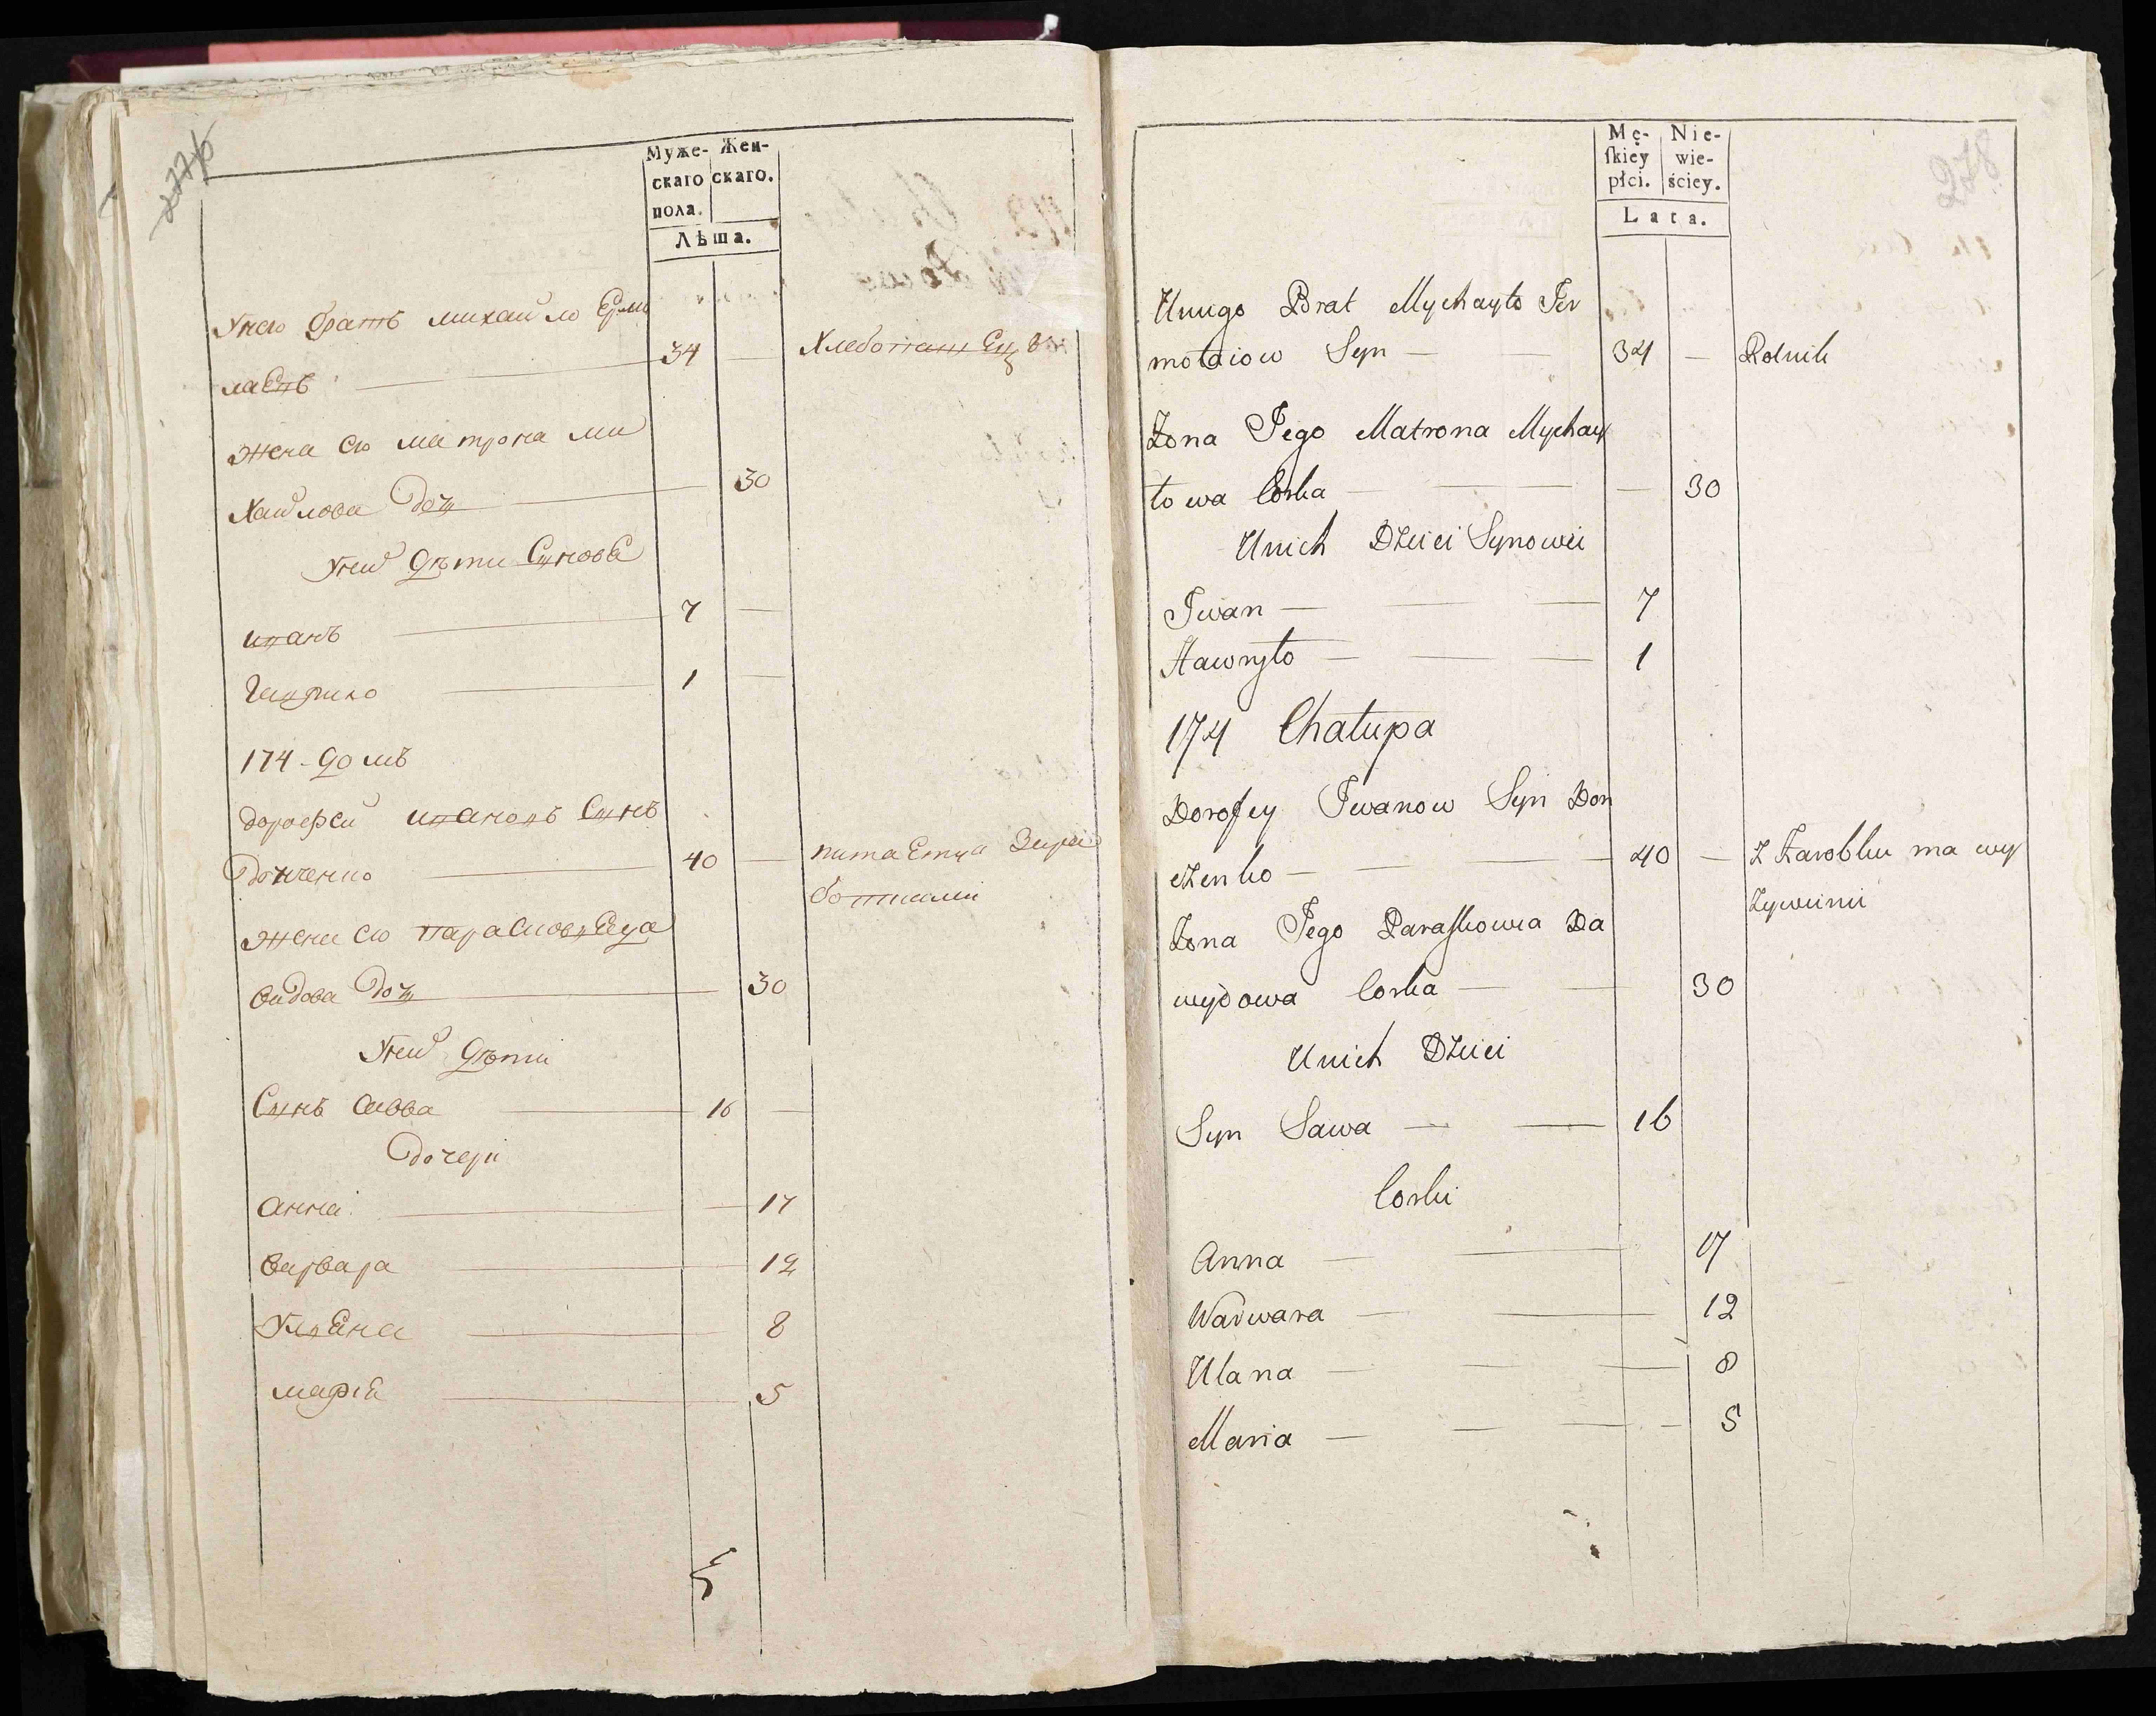 Муже- Жен-
скаго скаго.
пола.
Лѣша.
Унего братъ михаило Ерми
лаевъ 34 — Хлебопашецъ
жена его матрона ми
хайлова дочь 30
Уних дѣти Синове
иванъ 7 —
Гаврило 1 —
174 - домъ
дорофей ивановъ Синъ
донченко 40 — питается Зара
ботками
жена его парасковея да
видова дочь 30
Уних дѣти
Синъ савва 16 —
дочери
анна — 17
варвара 12
Улиена 8
мария 5
278
Mę- Nie-
ſkiey wie-
płci. ściey.
Lata.
Uniego Brat Mychayło Jer
mołaiow Syn — — 34 — Rolnik
Żona Jego Matrona Mychay
łowa Corka — — — — 30
Unich Dzieci Synowie
Iwan — — — 7
Hawryło — — — 1
174 Chałupa
Dorofey Iwanow Syn Don
czenko — — — 40 — Z Zarobku ma wy
żywienie
Żona Jego Paraſkowia Da
wydowa Corka — — 30
Unich Dzieci
Syn Sawa — — 16
Corki
Anna — — 17
Warwara — — 12
Ulana — — — 8
Maria — — — — 5